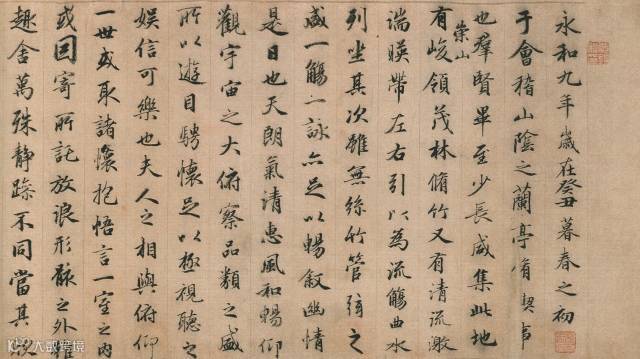 永和九年歲在癸丑暮春之初
于會稽山陰之蘭亭脩禊事
也羣賢畢至少長咸集此地
有崇山峻領茂林脩竹又有清流激
湍暎帶左右引以為流觴曲水
列坐其次雖無絲竹管弦之
盛一觴一詠亦足以暢敘幽情
是日也天朗氣清惠風和暢仰
觀宇宙之大俯察品類之盛
所以遊目騁懷足以極視聽之
娛信可樂也夫人之相與俯仰
一世或取諸懷抱悟言一室之內
或因寄所託放浪形骸之外雖
趣舍萬殊靜躁不同當其
大数跨境